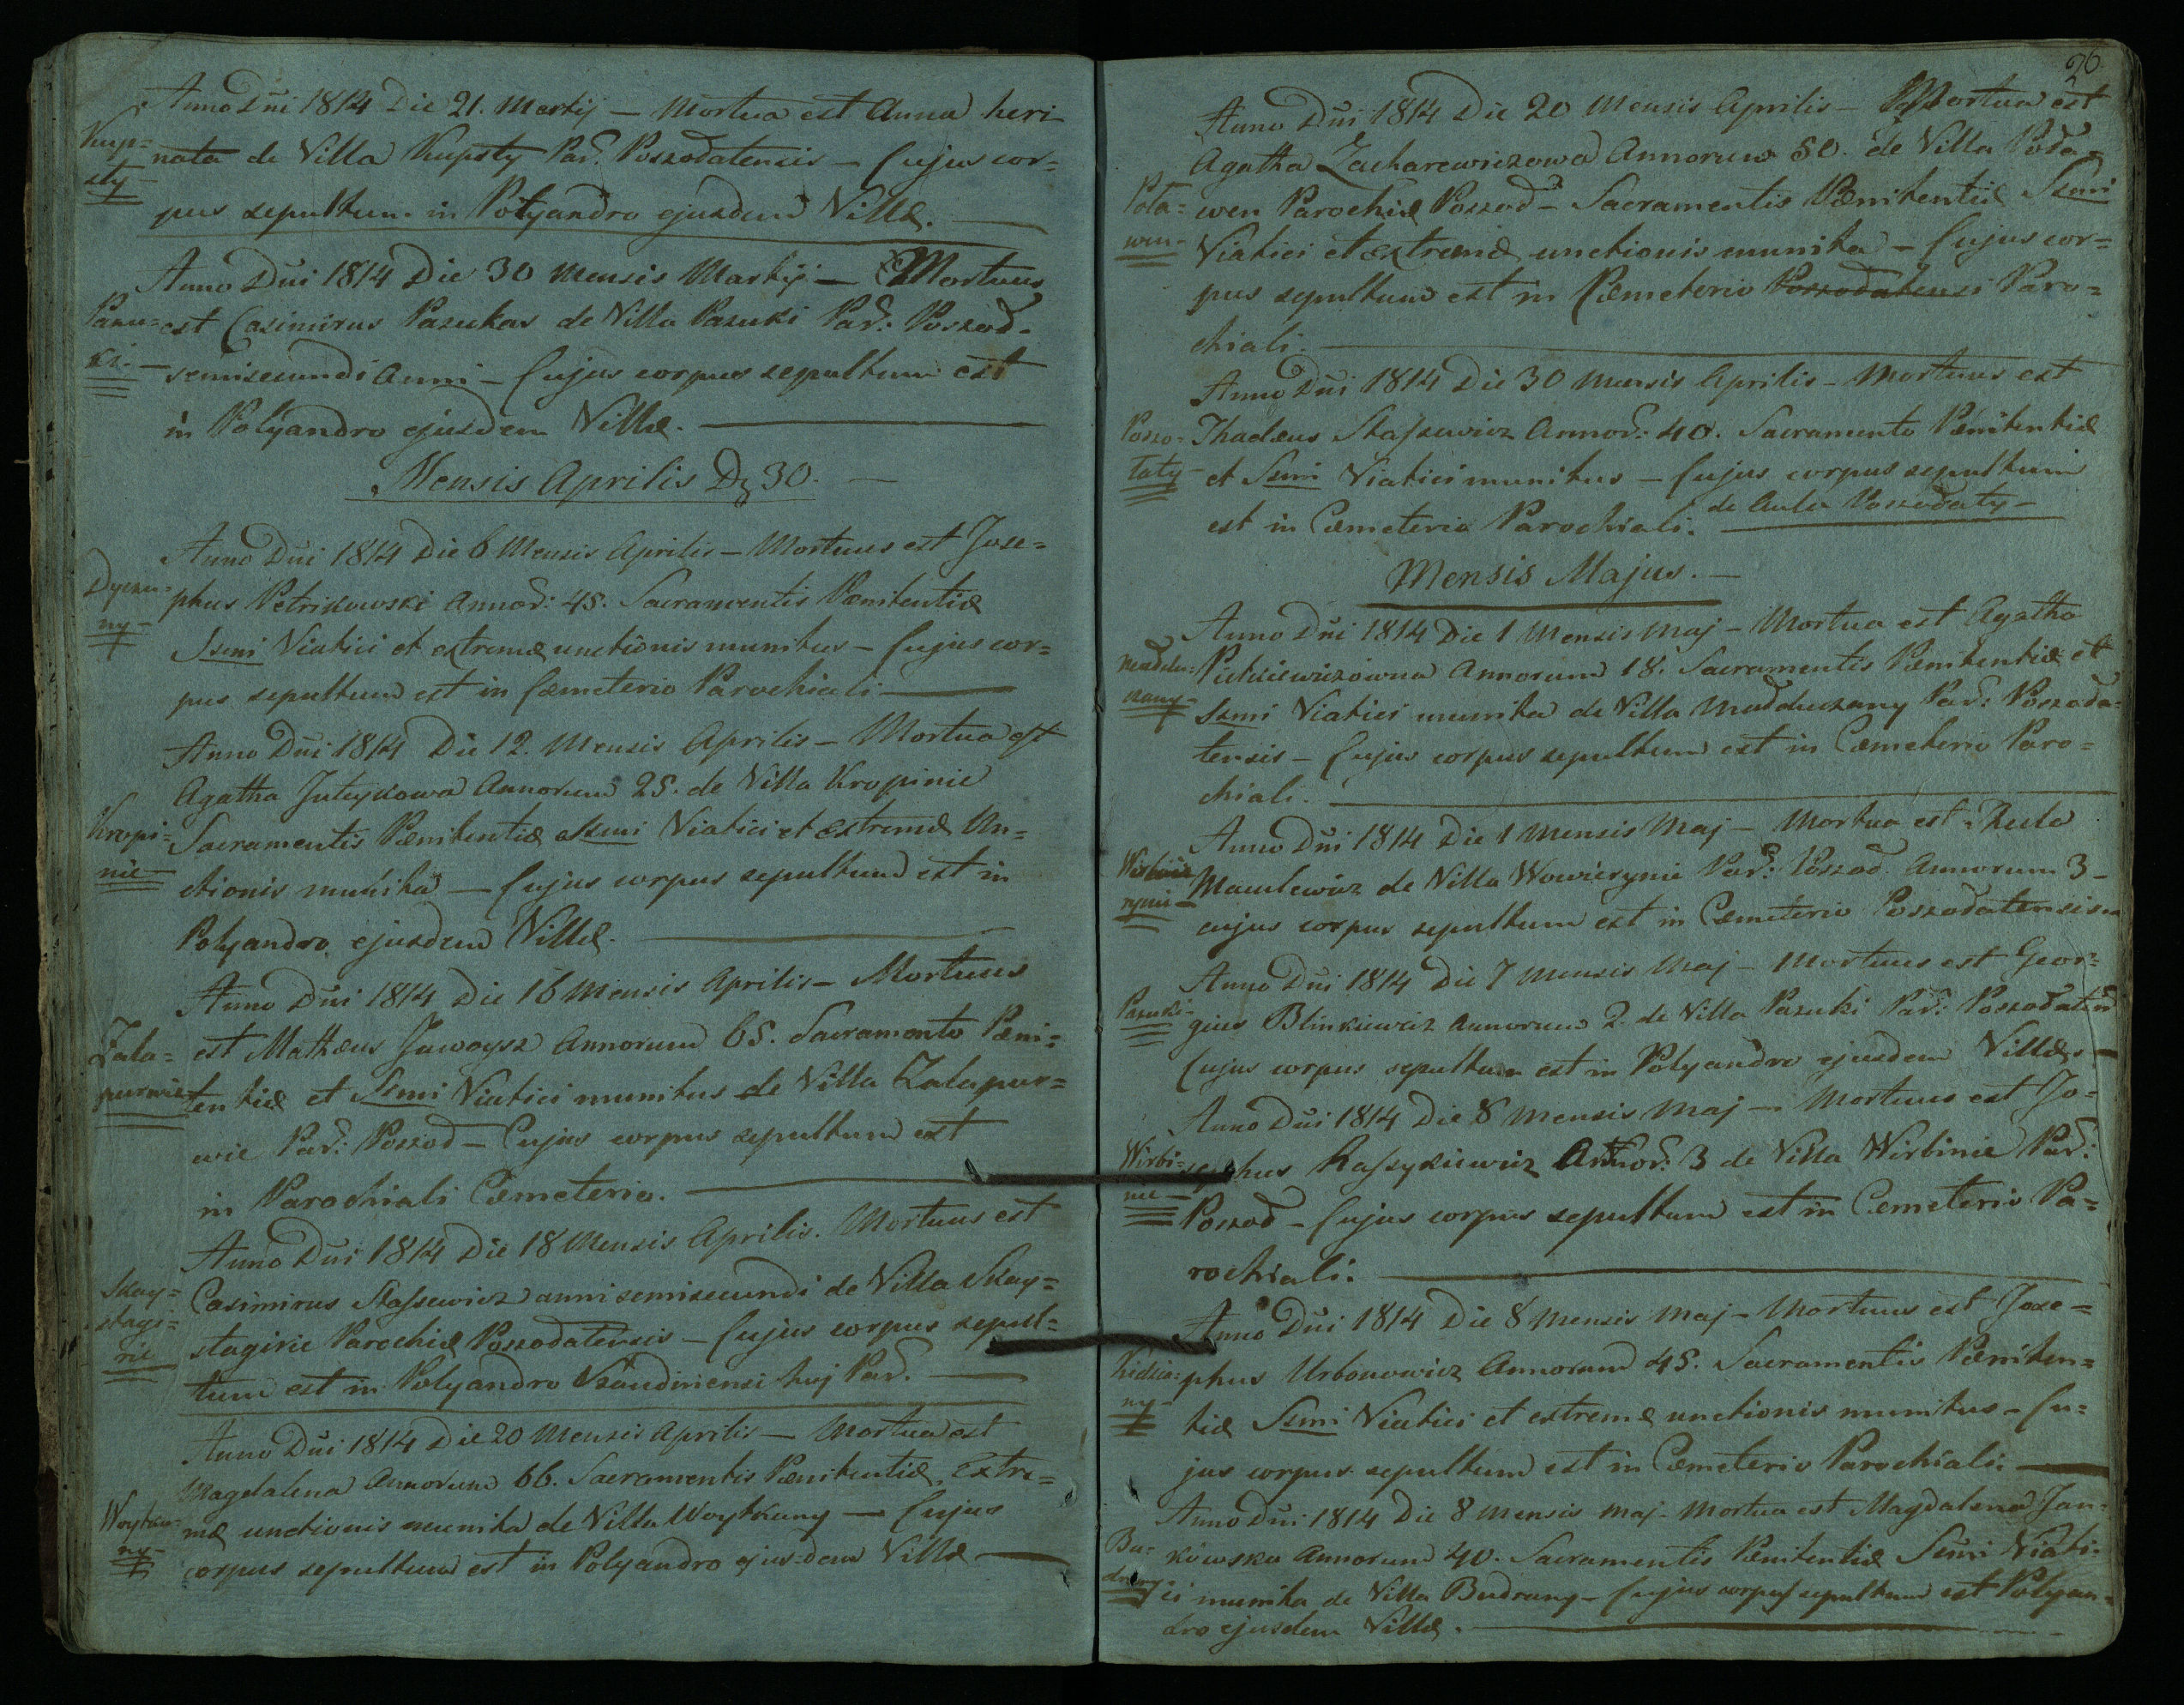 Anno Dni 1814 Die 21. Martij — Mortua est Anna heri
Kup=
sty
nata de Villa Kupsty Par: Poszodatensis — Cujus cor=
pus sepultum in Polyandro ejusdem Villæ.
Anno Dni 1814 Die 30 Mensis Martij — Mortuus
Pazu=
ki.
est Casimirus Pazukas de Villa Pazuki Par: Poszod.
semisecundi Anni — Cujus corpus sepultum est
in Polyandro ejusdem Villæ.
Mensis Aprilis D. 30.
Anno Dni 1814 Die 6 Mensis Aprilis — Mortuus est Jose=
ny
phus Petrikowski Annor: 45. Sacramentis Pænitentiæ
Ssmi Viatici et extremæ unctionis munitus — Cujus cor=
pus sepultum est in Cæmeterio Parochiali.
Anno Dni 1814 Die 12. Mensis Aprilis — Mortua est
Agatha Annorum 25. de Villa Kropinie
Kropi=
nie
Sacramentis Pænitentiæ Ssmi Viatici et Extremæ Un=
ctionis munita — Cujus corpus sepultum est in
Polyandro ejusdem Villæ.
Anno Dni 1814 Die 16 Mensis Aprilis — Mortuus
Zala=
purwie
est Mathæus Jawoysz Annorum 65. Sacramento Pæni=
tentiæ et Ssmi Viatici munitus de Villa Zalapur=
wie Par: Poszod — Cujus corpus sepultum est
in Parochiali Cæmeterio.
Anno Dni 1814 Die 18 Mensis Aprilis. Mortuus est
Skay=
stagi=
rie
Casimirus Staszewicz anni semisecundi de Villa Skay=
stagirie Parochiæ Poszodatensis — Cujus corpus sepul=
tum est in Polyandro Szaudiniensi huj Par.
Anno Dni 1814 Die 20 Mensis Aprilis — Mortua est
Magdalena Annorum 66. Sacramentis Pænitentiæ, Extre=
Woytku=
ny
mæ unctionis munita de Villa Woytkuny — Cujus
corpus sepultum est in Polyandro ejusdem Villæ
26
Anno Dni 1814 Die 20 Mensis Aprilis — Mortua est
Agatha Zacharewiczowa Annorum 50. de Villa Poda=
Pota=
wen
wen Parochiæ Poszod — Sacramentis Pænitentiæ Ssmi
Viatici et extremæ unctionis munita — Cujus cor=
pus sepultum est in Cæmeterio Poszodatensi Paro=
chiali.
Anno Dni 1814 Die 30 Mensis Aprilis — Mortuus est
Poszo=
taty
Thadæus Staszewicz Annor: 40. Sacramento Pænitentiæ
et Ssmi Viatici munitus — Cujus corpus sepultum
est in Cæmeterio Parochiali. de Aula Poszodaty —
Mensis Majus.
Anno Dni 1814 Die 1 Mensis Maj — Mortua est Agatha
Annorum 18. Sacramentis Pænitentiæ et
Ssmi Viatici munita de Villa Madduczany Par: Poszoda=
tensis — Cujus corpus sepultum est in Cæmeterio Paro=
chiali.
Anno Dni 1814 Die 1 Mensis Maj — Mortua est
rynie
Maculewicz de Villa Wowierynie Par: Poszod. Annorum 3 —
cujus corpus sepultum est in Cæmeterio Poszodatensis
Anno Dni 1814 Die 7 Mensis Maj — Mortuus est Geor=
Pazuki
gius Blinkiewicz Annorum 2. de Villa Pazuki Par: Poszodaten
Cujus corpus sepultum est in Polyandro ejusdem Villæ.
Anno Dni 1814 Die 8 Mensis Maj — Mortuus est Jo=
Wirbi=
nie
sephus Raszykiewicz Annor: 3 de Villa Wirbinie Par:
Poszod — Cujus corpus sepultum est in Cæmeterio Pa=
rochiali.
Anno Dni 1814 Die 8 Mensis Maj — Mortuus est Jose=
ny
phus Urbonowicz Annorum 45. Sacramentis Pæniten=
tiæ Ssmi Viatici et extremæ unctionis munitus — Cu=
jus corpus sepultum est in Cæmeterio Parochiali.
Anno Dni 1814 Die 8 Mensis Maj. Mortua est Magdalena Jan=
Bu=
drany
kowska Annorum 40. Sacramentis Pænitentiæ Ssmi Viati=
ci munita de Villa Budrany — Cujus corpus sepultum est Polyan=
dro ejusdem Villæ.